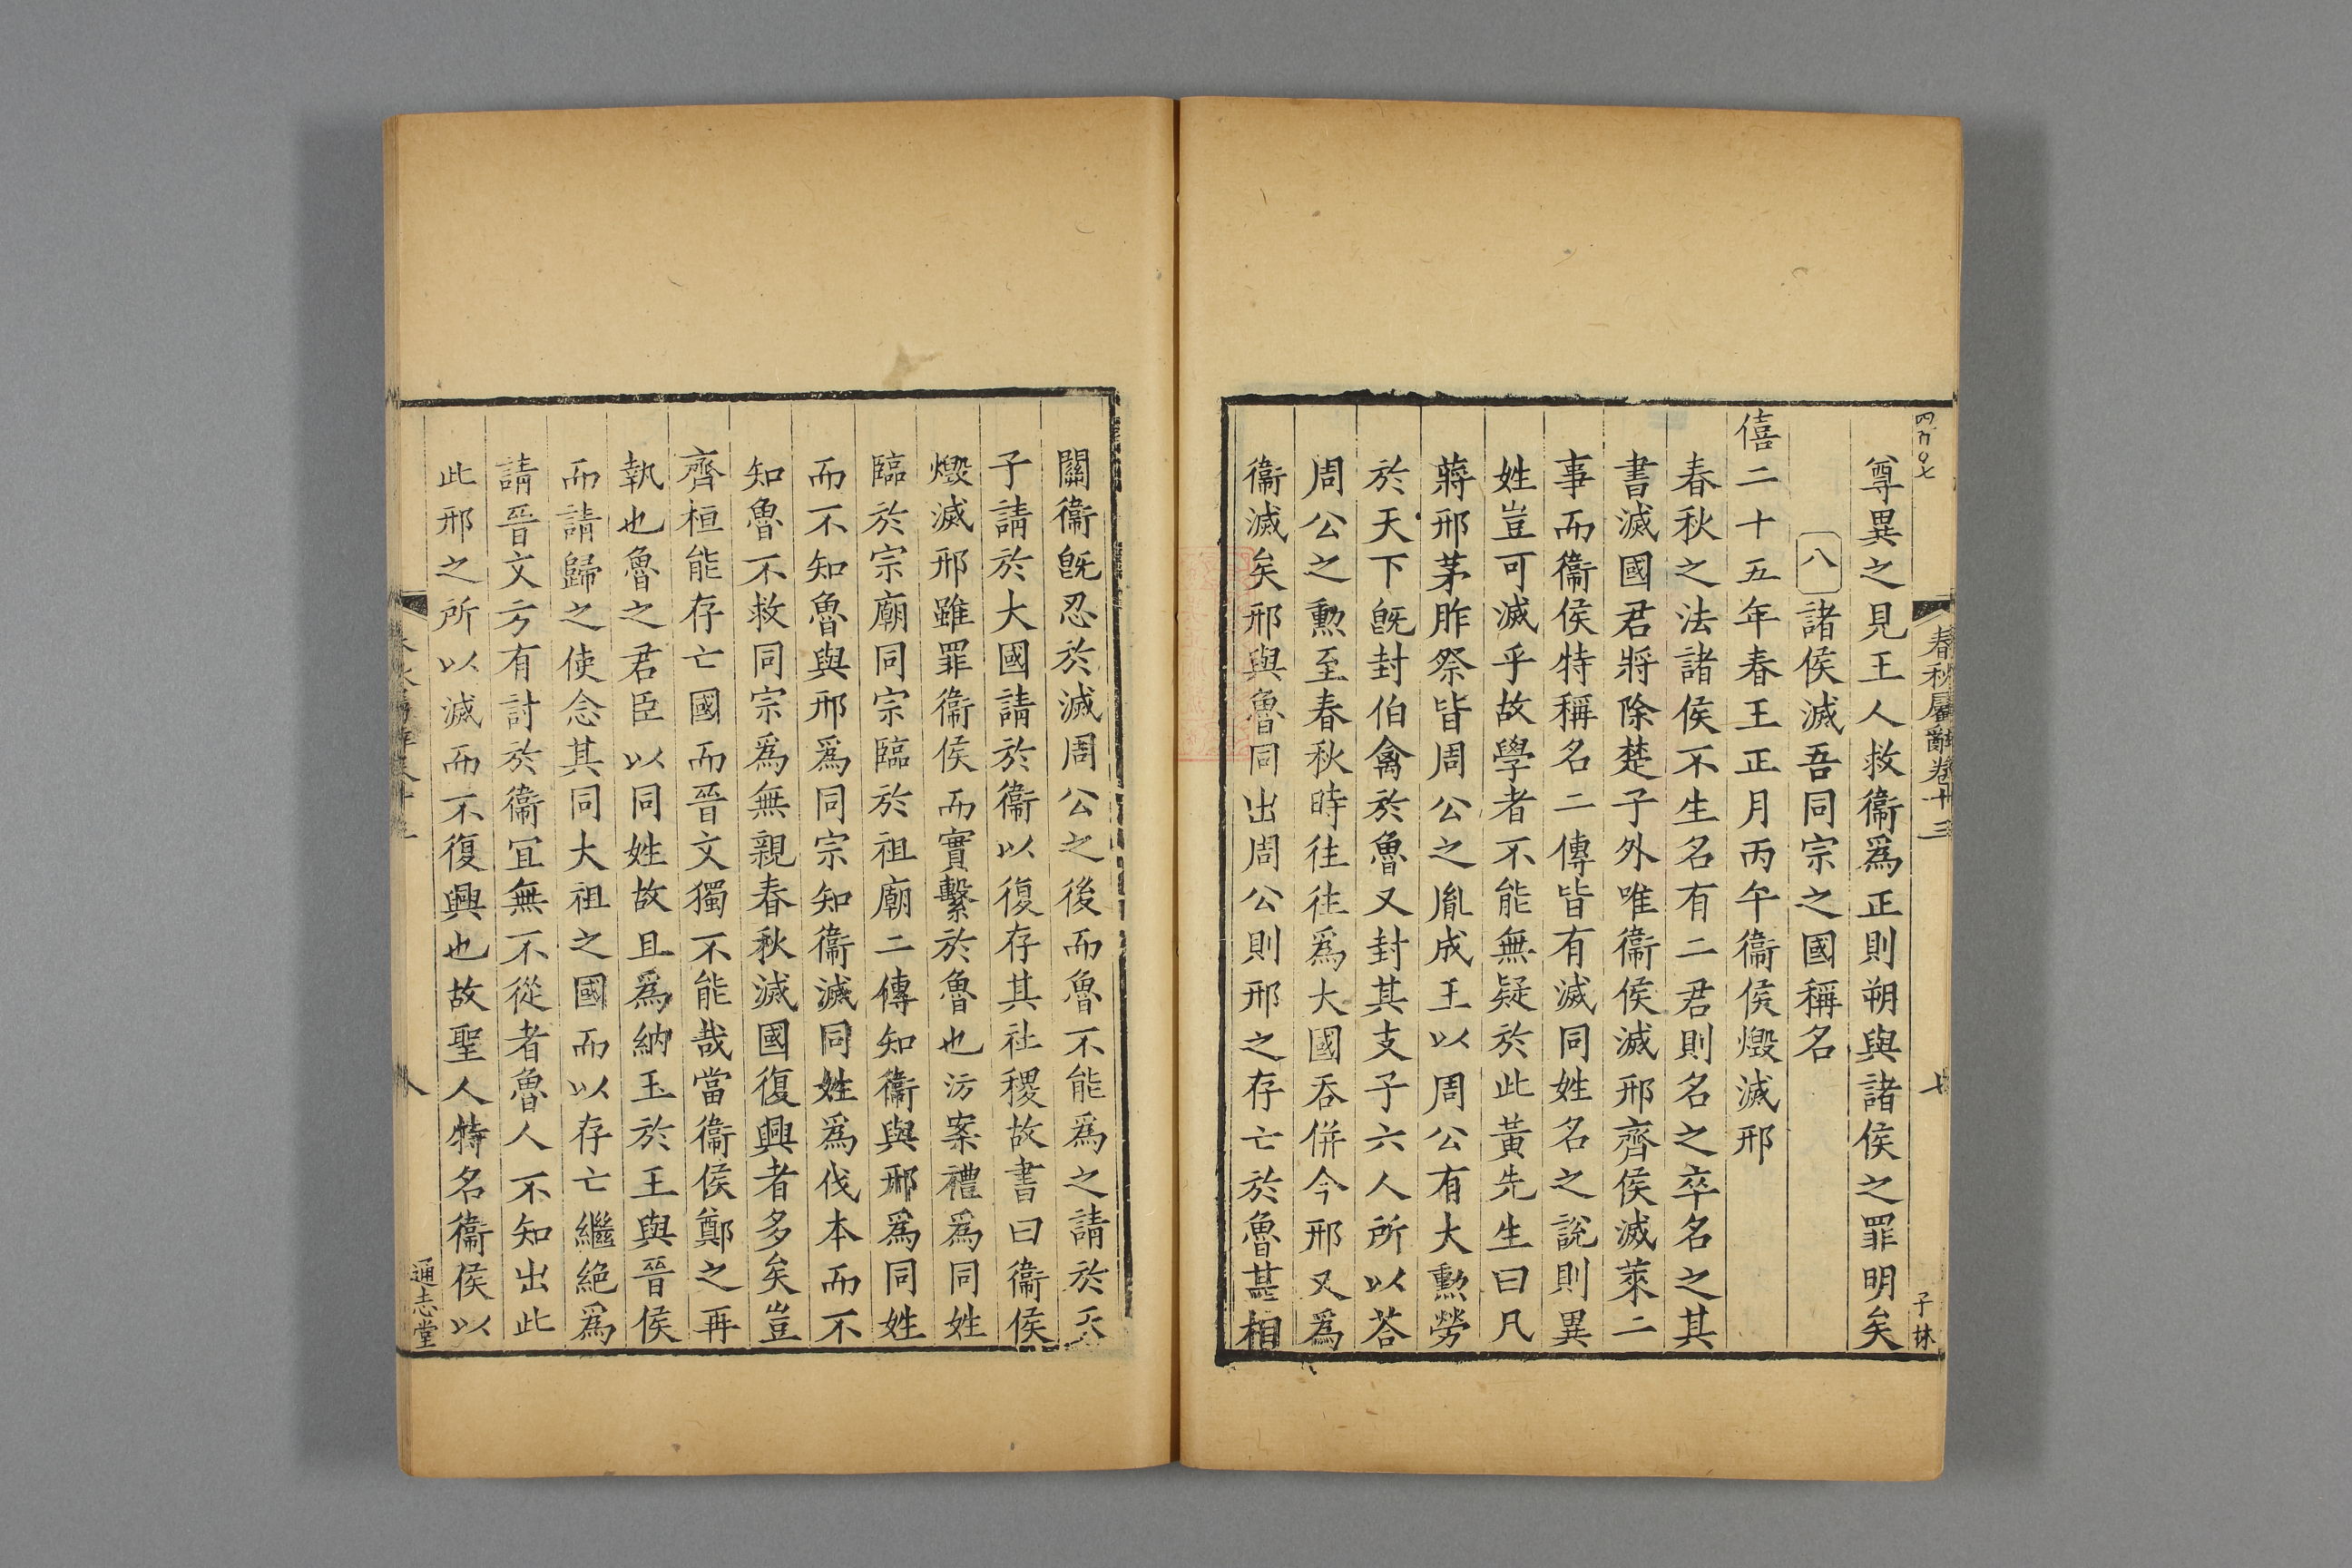 四百〇七
春秋屬辭卷十三
七
子林
尊異之見王人救衞爲正則朔與諸侯之罪明矣
八諸侯滅吾同宗之國稱名
僖二十五年春王正月丙午衞侯燬滅邢
春秋之法諸侯不生名有二君則名之卒名之其
書滅國君將除楚子外唯衞侯滅邢齊侯滅萊二
事而衞侯特稱名二傳皆有滅同姓名之說則異
姓豈可滅乎故學者不能無疑於此黃先生曰凡
蔣邢茅胙祭皆周公之胤成王以周公有大勲勞
於天下旣封伯禽於魯又封其支子六人所以荅
周公之勲至春秋時往往爲大國吞併今邢又爲
衞滅矣邢與魯同出周公則邢之存亡於魯甚相
關衞旣忍於滅周公之後而魯不能爲之請於天
子請於大國請於衞以復存其社稷故書曰衞侯
燬滅邢雖罪衞侯而實繫於魯也汸案禮爲同姓
臨於宗廟同宗臨於祖廟二傳知衞與邢爲同姓
而不知魯與邢爲同宗知衞滅同姓爲伐本而不
知魯不救同宗爲無親春秋滅國復興者多矣豈
齊桓能存亡國而晉文獨不能哉當衞侯鄭之再
執也魯之君臣以同姓故且爲納玉於王與晉侯
而請歸之使念其同大祖之國而以存亡繼絶爲
請晉文方有討於衞宜無不從者魯人不知出此
此邢之所以滅而不復興也故聖人特名衞侯以
八
通志堂